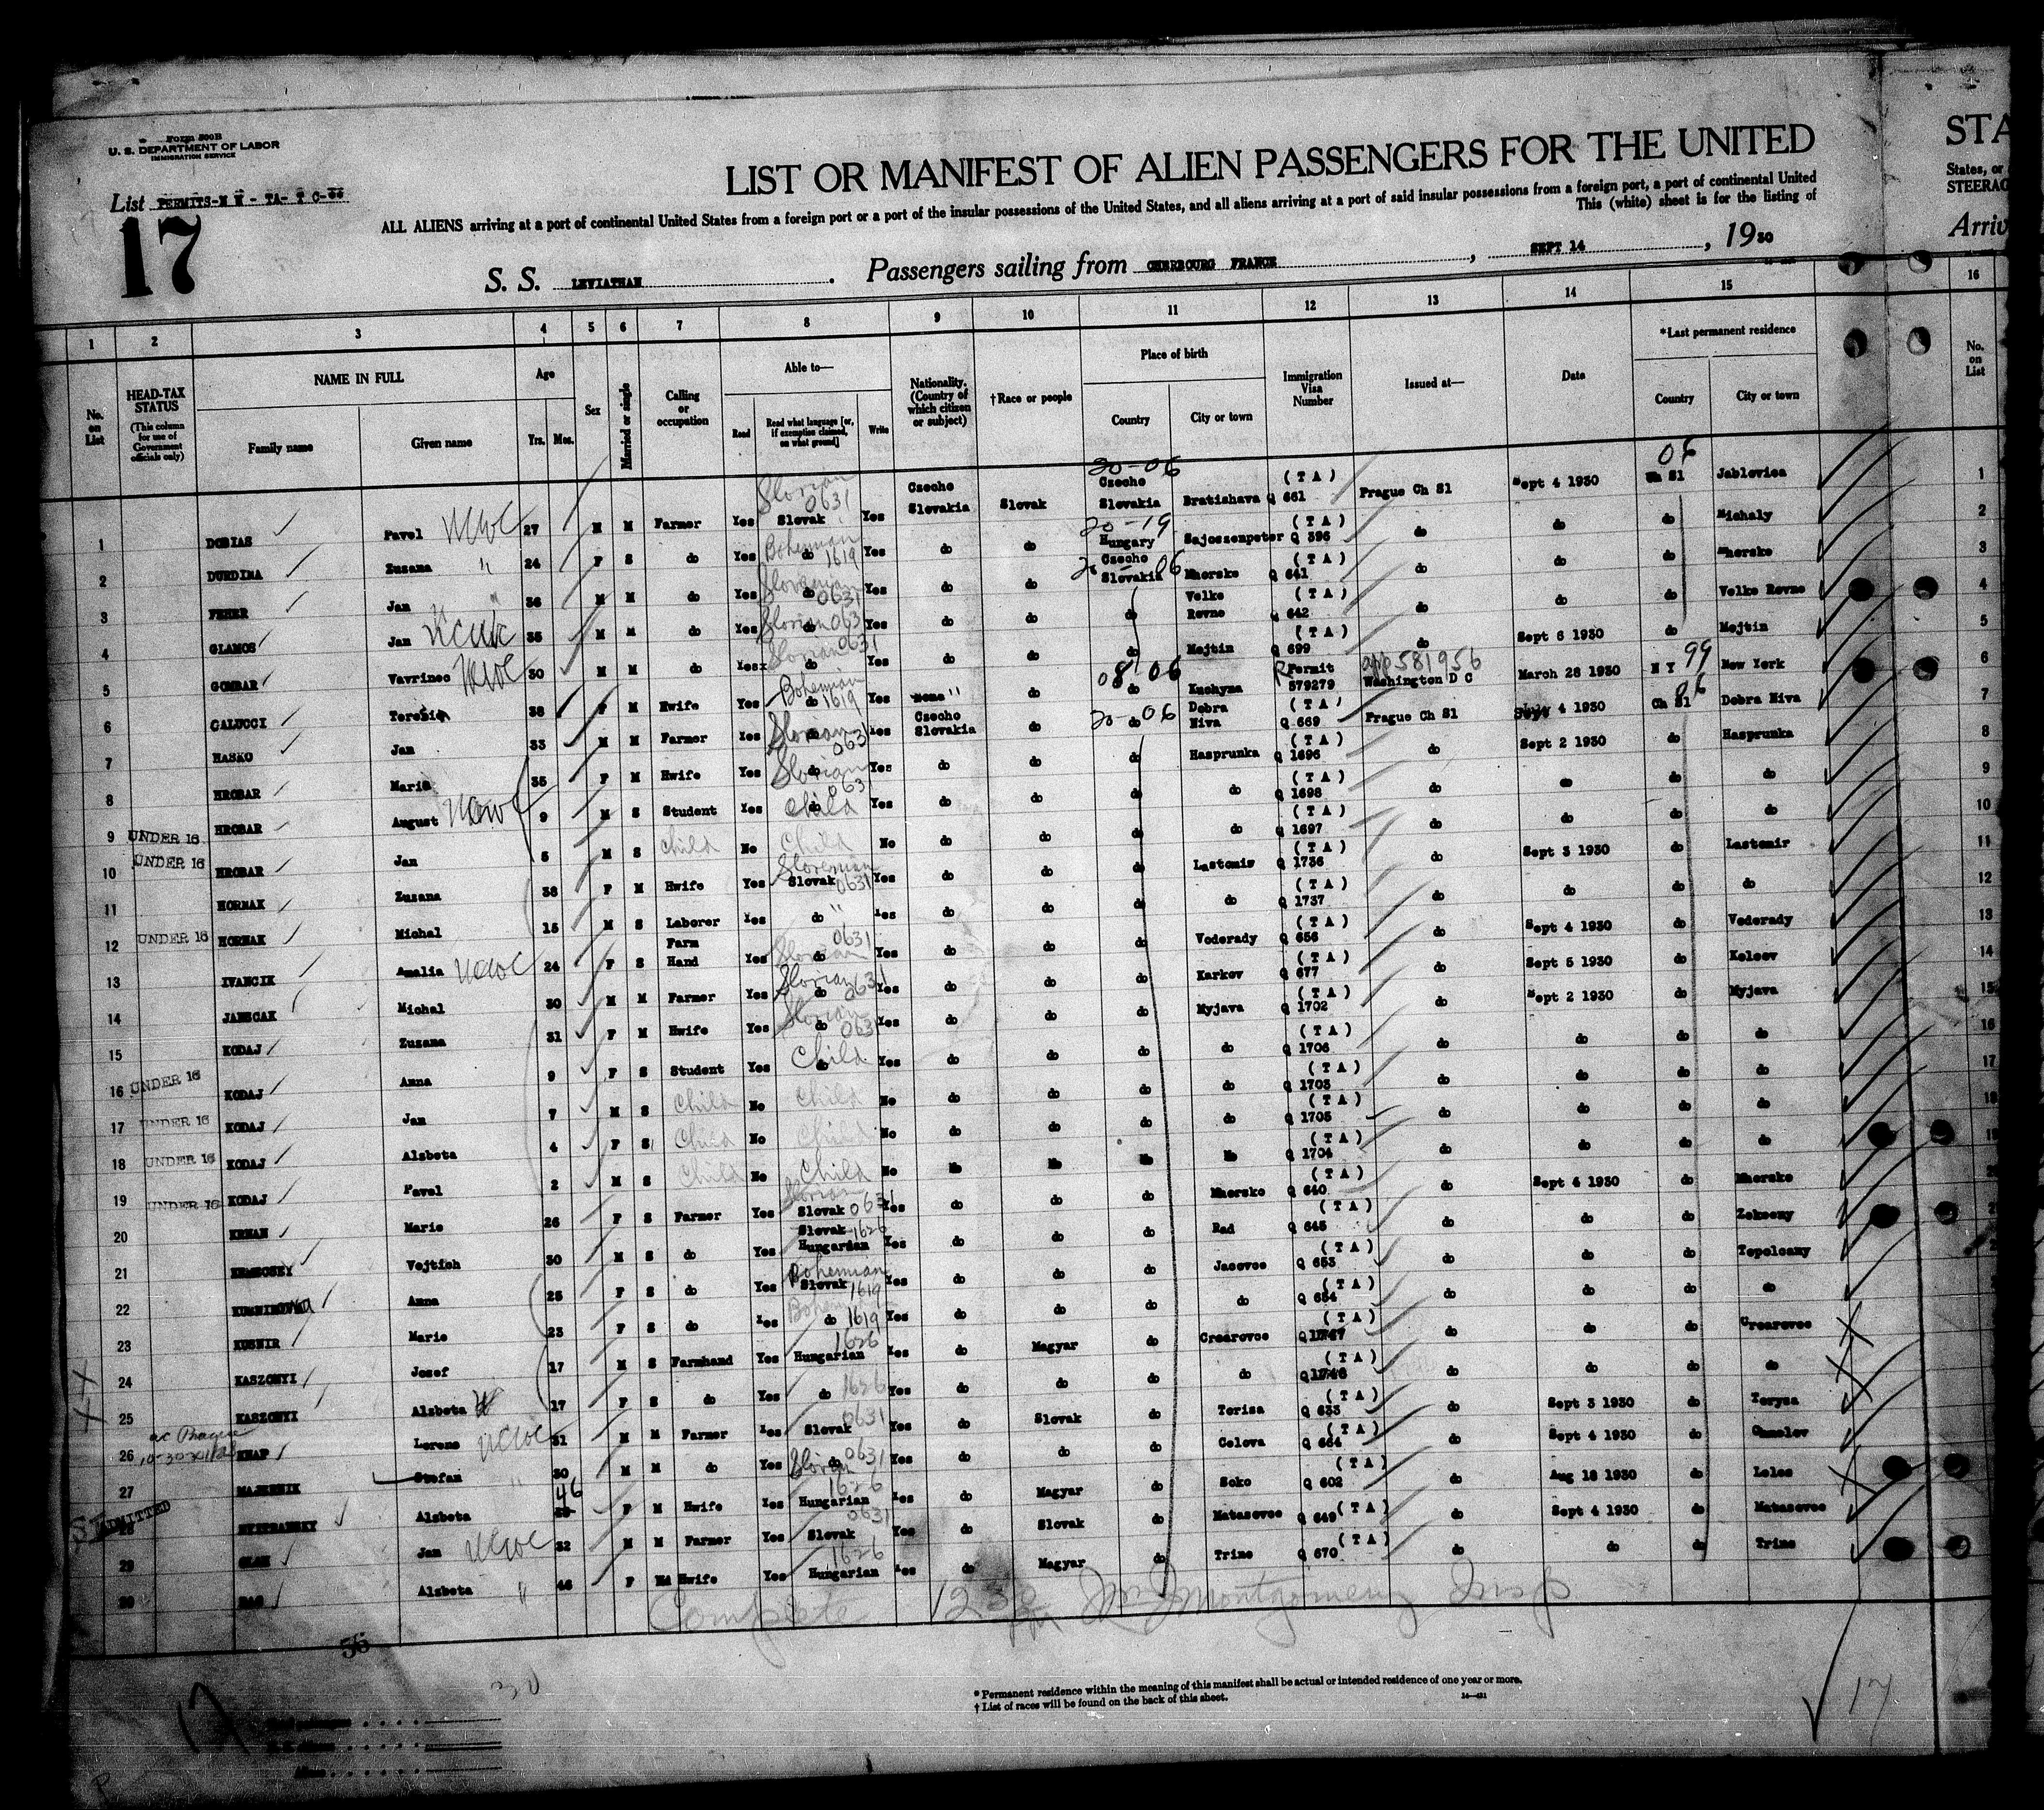 Form 500B
U. S. DEPARTMENT OF LABOR
IMMIGRATION SERVICE
List PERMITS- - TA- T C-
17
LIST OR MANIFEST OF ALIEN PASSENGERS FOR THE UNITED
STA
ALL ALIENS arriving at a port of continental United States from a foreign port or a port of the insular possessions of the United States, and all aliens arriving at a port of said insular possessions from a foreign port, a port of continental United
States, or
This (white) sheet is for the listing of
STEERAG
S. S. LEVIATHAN. Passengers sailing from CHERBOURG FRANCE, SEPT 14, 1930
Arriv
1 2 3 4 5 6 7 8 9 10 11 12 13 14 15 16
No. on List
HEAD-TAX STATUS (This column for use of Government officials only)
NAME IN FULL
Family name Given name
Age Yrs. Mos.
Sex
Married or single
Calling or occupation
Able to—
Read Read what language [or, if exemption claimed, on what ground] Write
Nationality. (Country of which citizen or subject)
†Race or people
Place of birth
Country City or town
Immigration Visa Number
Issued at—
Date
*Last permanent residence
Country City or town
No. on List
1 DOBIAS Pavel 27 M M Farmer Yes Slovak 0631 Yes Czecho Slovakia Slovak 20-06 Czecho Slovakia Bratishava (TA) Q 661 Prague Ch Sl Sept 4 1930 06 Ch Sl Jablovica 1
2 DURDINA Zuzana " 24 F S do Yes Bohemian do 1619 Yes do do 20-19 Hungary Sajoszenpeter (TA) Q 396 do do do Michaly 2
3 FEHER Jan " 36 M M do Yes Slovenian do 0631 Yes do do Czecho Slovakia 06 Mhorske (TA) Q 641 do do do Mhorske 3
4 GLAMOS Jan 35 M M do Yes do 0631 Yes do do do Velke Rovne (TA) Q 642 do do do Velke Rovne 4
5 GOMBAR Vavrinec 30 M M do Yes do 0631 Yes do do do Mojtin (TA) Q 699 do Sept 6 1930 do Mojtin 5
6 GALUCCI Teresia 38 F M Hwife Yes Bohemian do 1619 Yes None " do 08-06 do Kuchyna Permit 579279 app 581956 Washington D C March 28 1930 N Y 99 New York 6
7 HASKO Jan 33 M M Farmer Yes do 0631 Yes Czecho Slovakia do 20-06 do Dobra Niva (TA) Q 669 Prague Ch Sl 4 1930 Ch Sl 06 Dobra Niva 7
8 HROBAR Maria 35 F M Hwife Yes do 063 Yes do do do Hasprunka (TA) Q 1696 do Sept 2 1930 do Hasprunka 8
9 UNDER 16 HROBAR August 9 M S Student Yes do Child Yes do do do do (TA) Q 1698 do do do do 9
10 UNDER 16 HROBAR Jan 5 M S Child No Child No do do do do (TA) Q 1697 do do do do 10
11 HORNAK Zuzana 38 F M Hwife Yes Slovenian Slovak 0631 Yes do do do Lastomir (TA) Q 1736 do Sept 3 1930 do Lastomir 11
12 UNDER 16 HORNAK Michal 15 M S Laborer Yes do " Yes do do do do (TA) Q 1737 do do do do 12
13 IVANCIK Amalia 24 F S Farm Hand Yes do 0631 Yes do do do Voderady (TA) Q 656 do Sept 4 1930 do Voderady 13
14 JANSCAK Michal 30 M M Farmer Yes do 0631 Yes do do do Karkov (TA) Q 677 do Sept 5 1930 do Kolcov 14
15 KODAJ Zuzana 31 F M Hwife Yes do 0631 Yes do do do Myjava (TA) Q 1702 do Sept 2 1930 do Myjava 15
16 UNDER 16 KODAJ Anna 9 F S Student Yes do Child Yes do do do do (TA) Q 1706 do do do do 16
17 UNDER 16 KODAJ Jan 7 M S Child No Child No do do do do (TA) Q 1703 do do do do 17
18 UNDER 16 KODAJ Alzbeta 4 F S Child No Child No do do do do (TA) Q 1705 do do do do 18
19 UNDER 16 KODAJ Pavel 2 M S Child No Child No do do do do (TA) Q 1704 do do do do 19
20 KRNAN Marie 26 F S Farmer Yes Slovak 0631 Yes do do do Mhorsko (TA) Q 640 do Sept 4 1930 do Mhorsko
21 Vojtish 30 M S do Yes Slovak Hungarian 1626 Yes do do do Rad (TA) Q 645 do do do
22 Anna 25 F S do Yes Bohemian Slovak 1619 Yes do do do Jasovce (TA) Q 653 do do do Topolcany
23 KUSNIR Marie 23 F S do Yes do 1619 Yes do do do do (TA) Q 654 do do do do
24 KASZONYI Josef 17 M S Farmhand Yes Hungarian 1626 Yes do Magyar do Crearovce (TA) Q do do do Crearovce
25 KASZONYI Alzbeta 17 F S do Yes do 1626 Yes do do do do (TA) Q do do do do
26 KNAP Lorenc 31 M M Farmer Yes Slovak 0631 Yes do Slovak do Torisa (TA) Q 633 do Sept 3 1930 do Torysa
27 MAJERNIK Stefan " 30 M M do Yes do 0631 Yes do do do Colova (TA) Q 664 do Sept 4 1930 do Chmelov
28 ADMITTED Alzbeta 46 F M Hwife Yes Hungarian 1626 Yes do Magyar do Soko (TA) Q 602 do Aug 18 1930 do Loles
29 Jan 32 M M Farmer Yes Slovak 0631 Yes do Slovak do Matasovce (TA) Q 649 do Sept 4 1930 do Matasovce
30 Alzbeta " 46 F Hwife Yes Hungarian 1626 Yes do Magyar do Trine (TA) Q 670 do do do Trine
Complete 1230 Wm J Montgomery Insp
56
30
17
* Permanent residence within the meaning of this manifest shall be actual or intended residence of one year or more.
† List of races will be found on the back of this sheet.
17